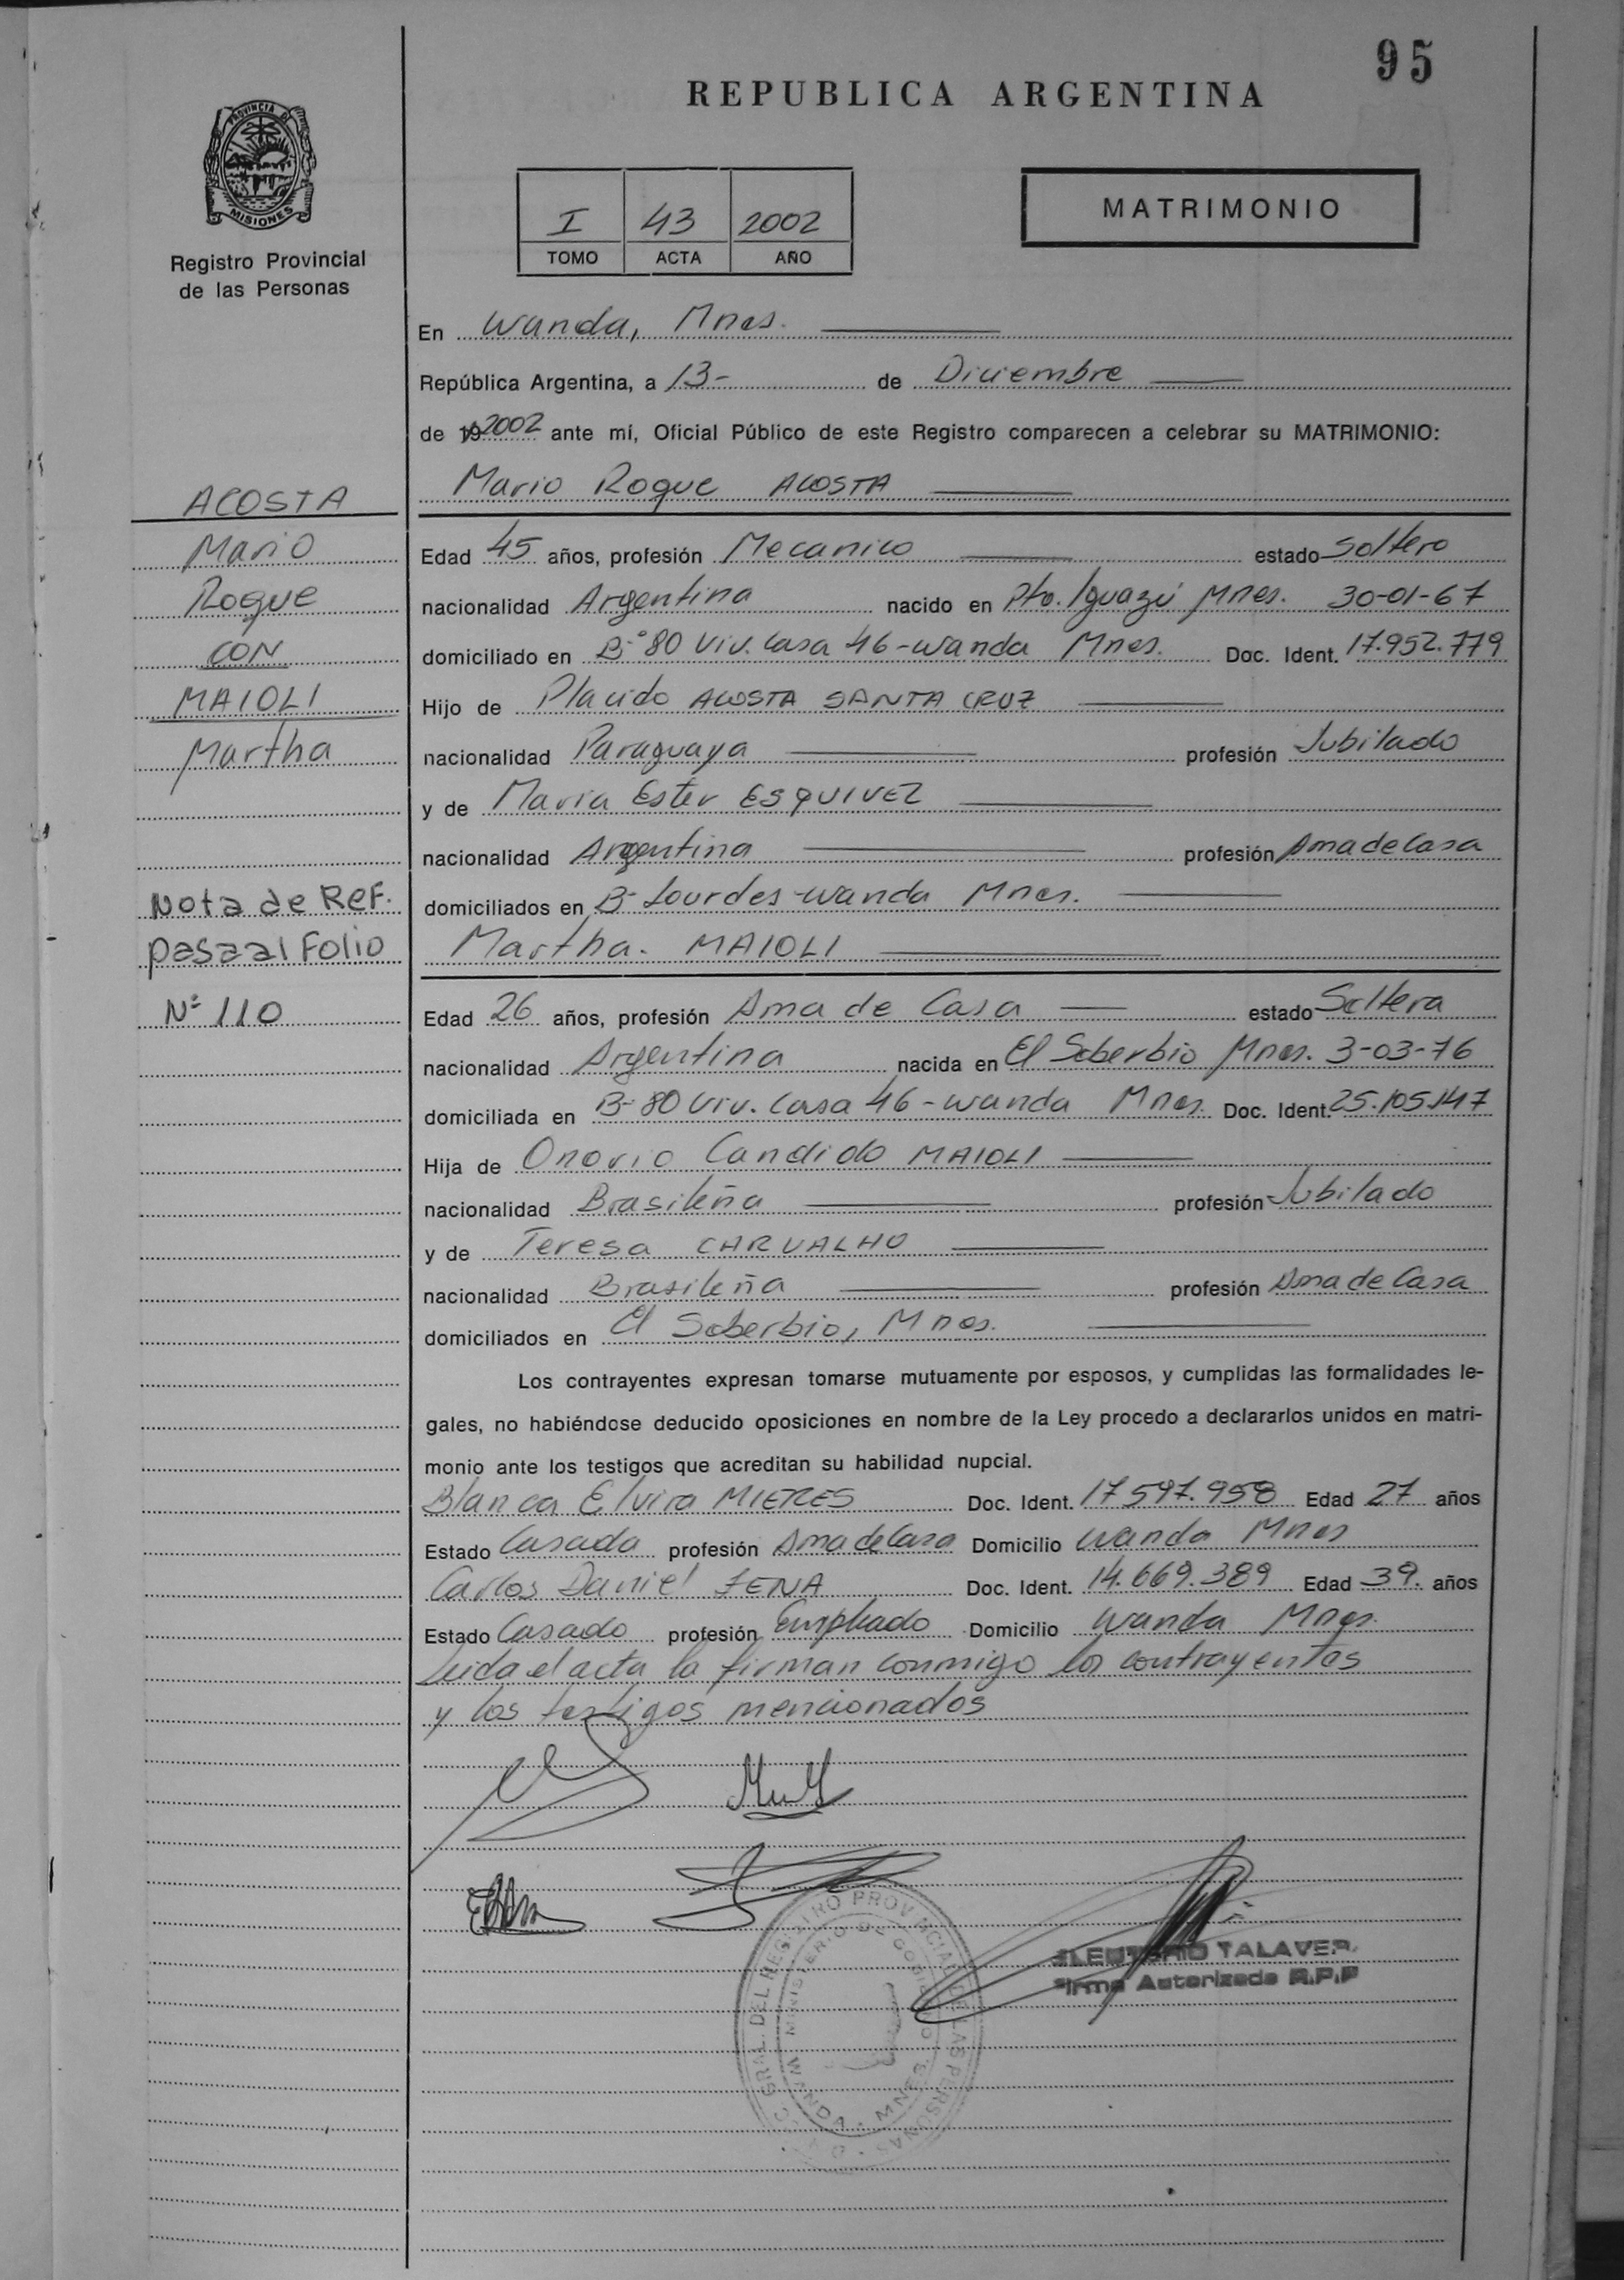 95
REPUBLICA ARGENTINA
PROVINCIA DE
MISIONES
Registro Provincial
de las Personas
I 43 2002
TOMO ACTA AÑO
MATRIMONIO
En Wanda, Mnes.
República Argentina, a 13- de Diciembre
de 192002 ante mí, Oficial Público de este Registro comparecen a celebrar su MATRIMONIO:
Mario Roque ACOSTA
ACOSTA
Mario
Roque
CON
MAIOLI
Martha
Nota de REF.
pasa al Folio
Nº 110
Edad 45 años, profesión Mecanico estado Soltero
nacionalidad Argentina nacido en Pto. Iguazú Mnes. 30-01-67
domiciliado en Bº 80 Viv. Casa 46-Wanda Mnes. Doc. Ident. 17.952.779
Hijo de Placido ACOSTA SANTA CRUZ
nacionalidad Paraguaya profesión Jubilado
y de Maria Ester ESQUIVEL
nacionalidad Argentina profesión Ama de Casa
domiciliados en Bº Lourdes-Wanda Mnes.
Martha. MAIOLI
Edad 26 años, profesión Ama de Casa estado Soltera
nacionalidad Argentina nacida en El Soberbio Mnes. 3-03-76
domiciliada en Bº 80 Viv. Casa 46-Wanda Mnes. Doc. Ident. 25.105.147
Hija de Onorio Candido MAIOLI
nacionalidad Brasileña profesión Jubilado
y de Teresa CARVALHO
nacionalidad Brasileña profesión Ama de Casa
domiciliados en El Soberbio, Mnes.
Los contrayentes expresan tomarse mutuamente por esposos, y cumplidas las formalidades le-
gales, no habiéndose deducido oposiciones en nombre de la Ley procedo a declararlos unidos en matri-
monio ante los testigos que acreditan su habilidad nupcial.
Blanca Elvira MIERES Doc. Ident. 17.597.958 Edad 27 años
Estado Casada profesión Ama de Casa Domicilio Wanda Mnes
Carlos Daniel ZENA Doc. Ident. 14.669.389 Edad 39. años
Estado Casado profesión Empleado Domicilio Wanda Mnes.
Leida el acta la firman conmigo los contrayentes
y los testigos mencionados
TALAVERA
Firma Autorizada R.P.P
GRAL. DEL REGISTRO PROVINCIAL DE LAS PERSONAS
MINISTERIO DE GOBIERNO
WANDA - MNES.